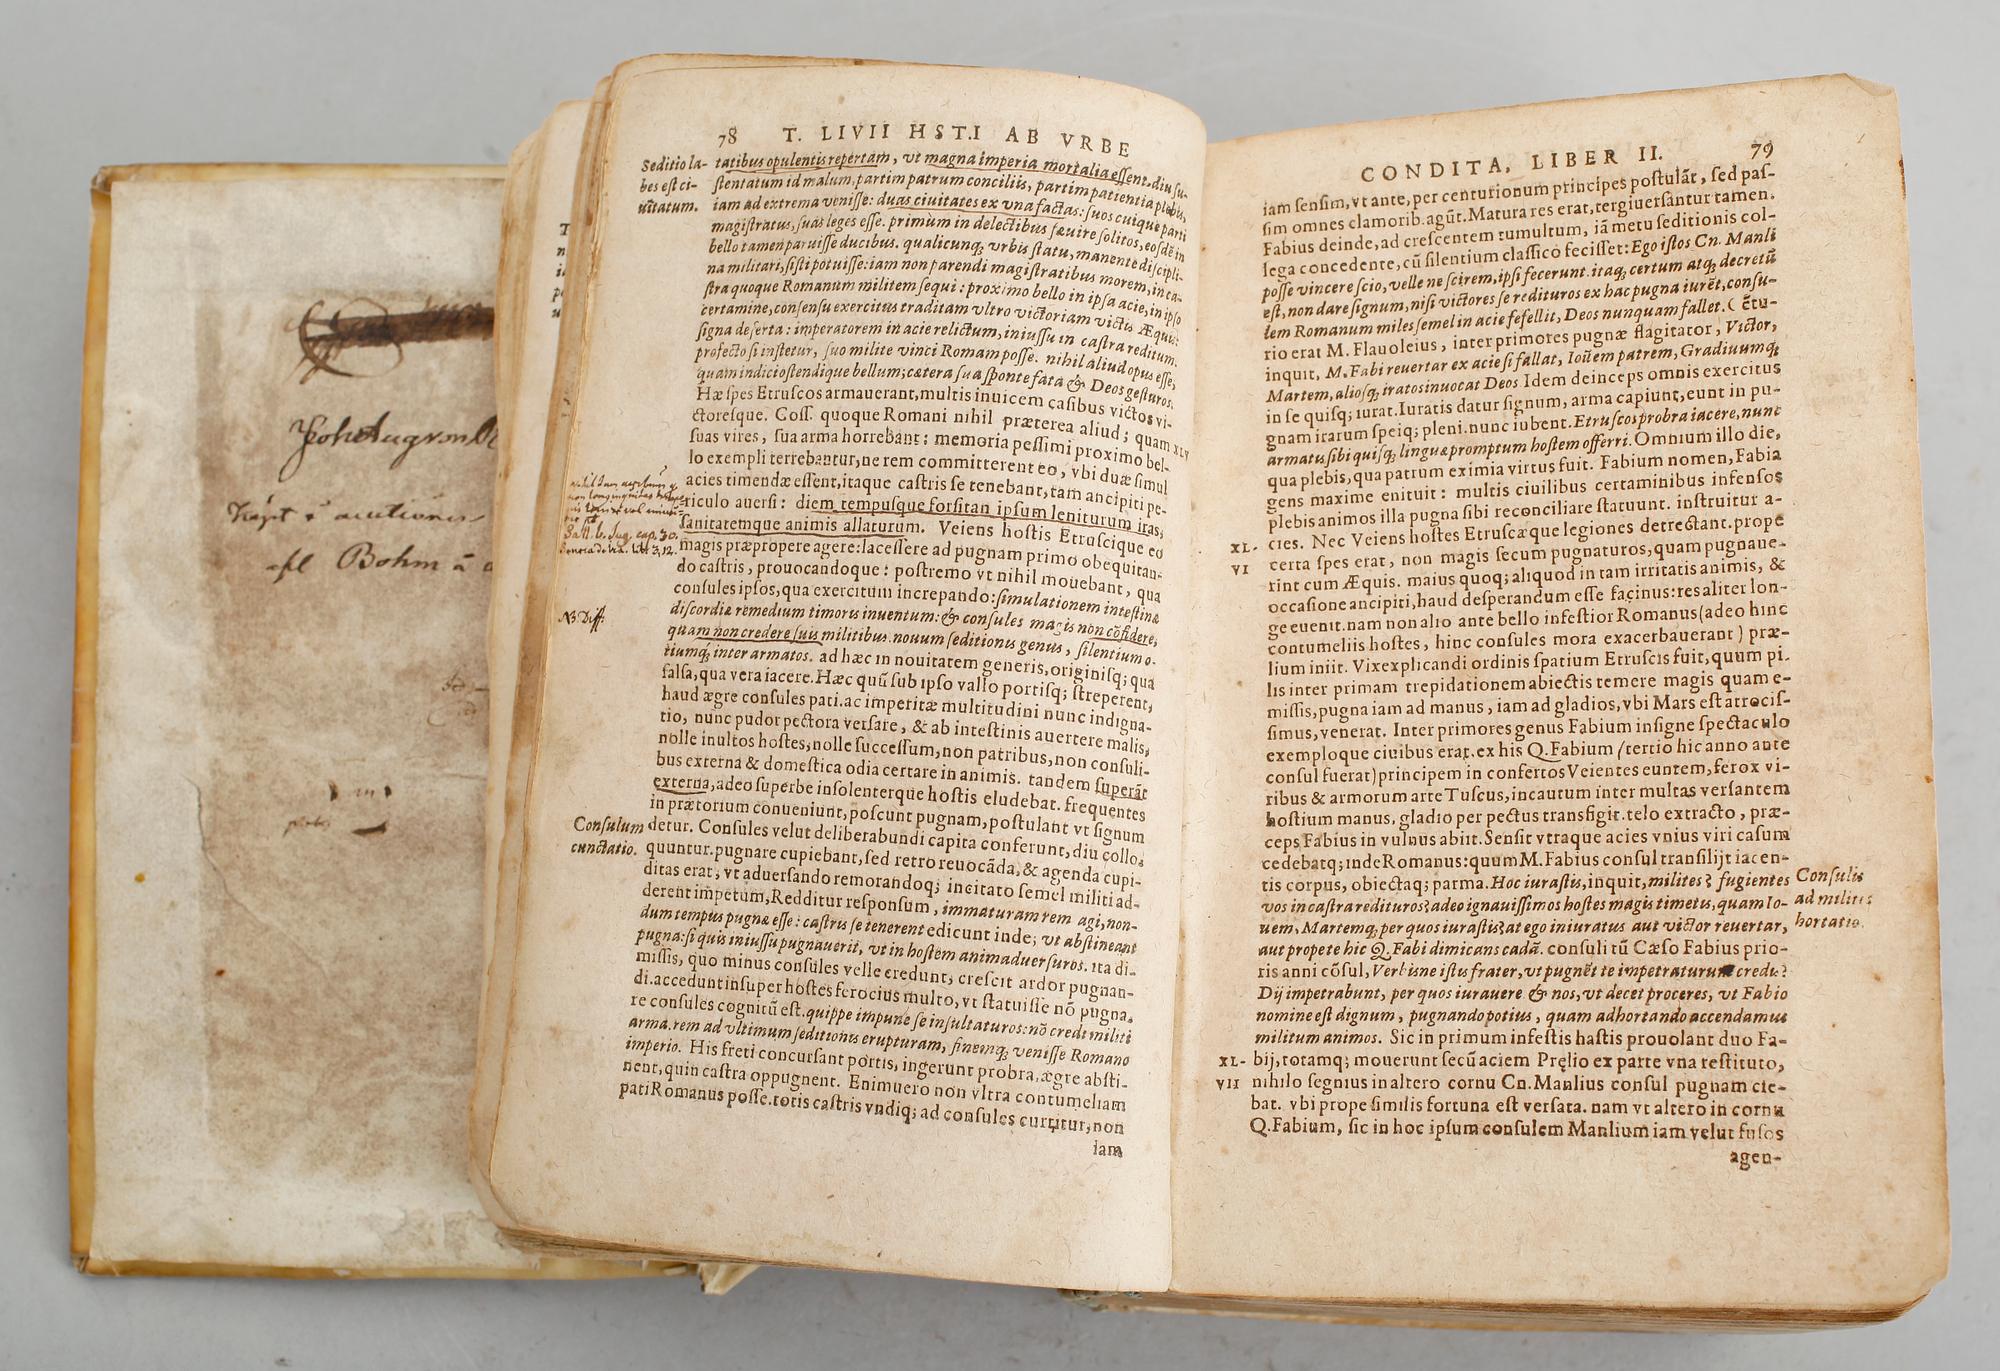 JohnAugvon
Kögt å auctionen
afl Bohm å
78 T. LIVII HST.I AB VRBE
Seditio la-
bes est ci-
uitatum.
tatibus opulentis repertam, vt magna imperia mortalia essent. diu su-
stentatum id malum, partim patrum conciliis, partim patientia plebis,
iam ad extrema venisse: duas ciuitates ex vna factas: suos cuique parti
magistratus, suas leges esse. primum in delectibus sæuire solitos, eosdē in
bello tamen paruisse ducibus. qualicunq; vrbis statu, manente discipli-
na militari, sisti potuisse: iam non parendi magistratibus morem, in ca-
stra quoque Romanum militem sequi: proximo bello in ipsa acie, in ipso
certamine, consensu exercitus traditam vltro victoriam victis Æquis:
signa deserta: imperatorem in acie relictum, iniussu in castra reditum.
profecto si instetur, suo milite vinci Romam posse. nihil aliud opus esse,
quam indici ostendique bellum; cætera sua sponte fata & Deos gesturos.
Hæ spes Etruscos armauerant, multis inuicem casibus victos vi-
ctoresque. Coss. quoque Romani nihil præterea aliud; quam XLV
suas vires, sua arma horrebant: memoria pessimi proximo bel-
lo exempli terrebantur, ne rem committerent eo, vbi duæ simul
acies timendæ essent, itaque castris se tenebant, tam ancipiti pe-
riculo auersi: diem tempusque forsitan ipsum leniturum iras,
sanitatemque animis allaturum. Veiens hostis Etruscique eo
magis præpropere agere: lacessere ad pugnam primo obequitan-
do castris, prouocandoque: postremo vt nihil mouebant, qua
consules ipsos, qua exercitum increpando: simulationem intestinæ
discordiæ remedium timoris inuentum: & consules magis non cōfidere,
quam non credere suis militibus. nouum seditionis genus, silentium o-
tiumq; inter armatos. ad hæc in nouitatem generis, originisq; qua
falsa, qua vera iacere. Hæc quū sub ipso vallo portisq; streperent,
haud ægre consules pati. ac imperitæ multitudini nunc indigna-
tio, nunc pudor pectora versare, & ab intestinis auertere malis,
nolle inultos hostes, nolle successum, non patribus, non consuli-
bus externa & domestica odia certare in animis. tandem superāt
externa, adeo superbe insolenterque hostis eludebat. frequentes
in prætorium conueniunt, poscunt pugnam, postulant vt signum
detur. Consules velut deliberabundi capita conferunt, diu collo-
quuntur. pugnare cupiebant, sed retro reuocāda, & agenda cupi-
ditas erat, vt aduersando remorandoq; incitato semel militi ad-
derent impetum, Redditur responsum, immaturam rem agi, non-
dum tempus pugnæ esse: castris se tenerent edicunt inde; vt abstineant
pugna: si quis iniussu pugnauerit, vt in hostem animaduersuros. ita di-
missis, quo minus consules velle credunt, crescit ardor pugnan-
di. accedunt insuper hostes ferocius multo, vt statuisse nō pugna-
re consules cognitū est. quippe impune se insultaturos: nō credi militi
arma. rem ad vltimum seditionis erupturam, finemq; venisse Romano
imperio. His freti concursant portis, ingerunt probra, ægre absti-
nent, quin castra oppugnent. Enimuero non vltra contumeliam
pati Romanus posse. totis castris vndiq; ad consules curritur, non
iam
Sall. b. Jug. cap. 30.
NB Diff.
Consulum
cunctatio.
CONDITA, LIBER II. 79
iam sensim, vt ante, per centurionum principes postulāt, sed pas-
sim omnes clamorib. agūt. Matura res erat, tergiuersantur tamen.
Fabius deinde, ad crescentem tumultum, iā metu seditionis col-
lega concedente, cū silentium classico fecisset: Ego istos Cn. Manli
posse vincere scio, velle ne scirem, ipsi fecerunt. itaq; certum atq; decretū
est, non dare signum, nisi victores se redituros ex hac pugna iurēt, consu-
lem Romanum miles semel in acie fefellit, Deos nunquam fallet. ( ētu-
rio erat M. Flauoleius, inter primores pugnæ flagitator, Victor,
inquit, M. Fabi reuertar ex acie si fallat, Iouem patrem, Gradiuumq;
Martem, aliosq; iratos inuocat Deos Idem deinceps omnis exercitus
in se quisq; iurat. Iuratis datur signum, arma capiunt, eunt in pu-
gnam irarum speiq; pleni. nunc iubent. Etruscos probra iacere, nunc
armatu sibi quisq; linguæ promptum hostem offerri. Omnium illo die,
qua plebis, qua patrum eximia virtus fuit. Fabium nomen, Fabia
gens maxime enituit: multis ciuilibus certaminibus infensos
plebis animos illa pugna sibi reconciliare statuunt. instruitur a-
XL-
VI
cies. Nec Veiens hostes Etruscæque legiones detrectant. prope
certa spes erat, non magis secum pugnaturos, quam pugnaue-
rint cum Æquis. maius quoq; aliquod in tam irritatis animis, &
occasione ancipiti, haud desperandum esse facinus: res aliter lon-
ge euenit. nam non alio ante bello infestior Romanus (adeo hinc
contumeliis hostes, hinc consules mora exacerbauerant) præ-
lium iniit. Vix explicandi ordinis spatium Etruscis fuit, quum pi-
lis inter primam trepidationem abiectis temere magis quam e-
missis, pugna iam ad manus, iam ad gladios, vbi Mars est atrocis-
simus, venerat. Inter primores genus Fabium insigne spectaculo
exemploque ciuibus erat. ex his Q. Fabium (tertio hic anno ante
consul fuerat) principem in confertos Veientes euntem, ferox vi-
ribus & armorum arte Tuscus, incautum inter multas versantem
hostium manus, gladio per pectus transfigit. telo extracto, præ-
ceps Fabius in vulnus abiit. Sensit vtraque acies vnius viri casum
cedebatq; inde Romanus: quum M. Fabius consul transilijt iacen-
tis corpus, obiectaq; parma. Hoc iurastis, inquit, milites? fugientes
vos in castra redituros? adeo ignauissimos hostes magis timetis, quam Io-
uem, Martemq; per quos iurastis? at ego iniuratus aut victor reuertar,
aut prope te hic Q. Fabi dimicans cadā. consuli tū Cæso Fabius prio-
ris anni cōsul, Verbisne istis frater, vt pugnēt te impetraturum credis?
Dij impetrabunt, per quos iurauere & nos, vt decet proceres, vt Fabio
nomine est dignum, pugnando potius, quam adhortando accendamus
militum animos. Sic in primum infestis hastis prouolant duo Fa-
bij, totamq; mouerunt secū aciem Pręlio ex parte vna restituto,
nihilo segnius in altero cornu Cn. Manlius consul pugnam cie-
bat. vbi prope similis fortuna est versata. nam vt altero in cornu
Q. Fabium, sic in hoc ipsum consulem Manlium iam velut fusos
agen-
Consulis
ad milites
hortatio.
XL-
VII